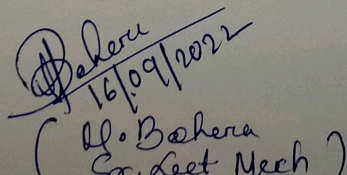 Behera
16/09/2022
(M. Behera
Sr. Lect Mech)